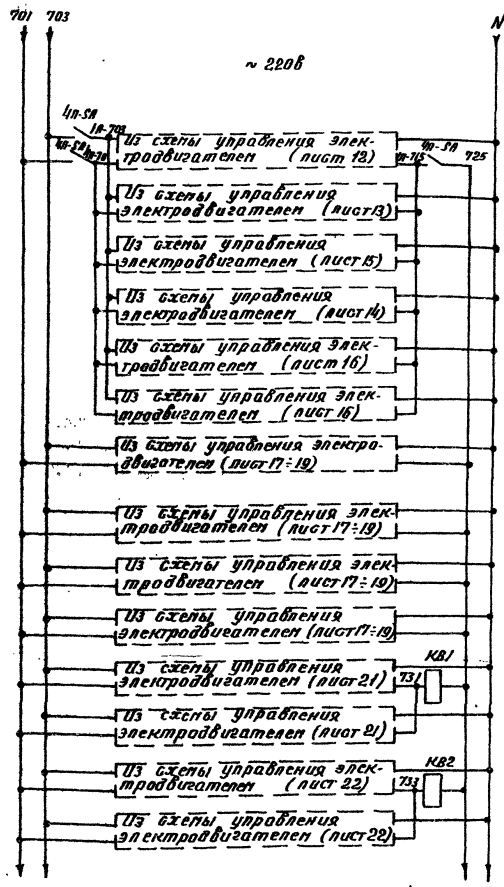 701 703 N
~ 220в
4п-SA
1п-703
Из схемы управления элек-
тродвигателем (лист 12)
4п-SA
4п-715
4п-SA
725
Из схемы управления
электродвигателем (лист 13)
Из схемы управления
электродвигателем (лист 15)
Из схемы управления
электродвигателем (лист 14)
Из схемы управления элек-
тродвигателем (лист 16)
Из схемы управления элек-
тродвигателем (лист 16)
Из схемы управления электро-
двигателем (лист 17÷19)
Из схемы управления элек-
тродвигателем (лист 17÷19)
Из схемы управления элек-
тродвигателем (лист 17÷19)
Из схемы управления
электродвигателем (лист 17÷19)
Из схемы управления
электродвигателем (лист 21)
731
КВ1
Из схемы управления
электродвигателем (лист 21)
Из схемы управления элек-
тродвигателем (лист 22)
733
КВ2
Из схемы управления
электродвигателем (лист 22)